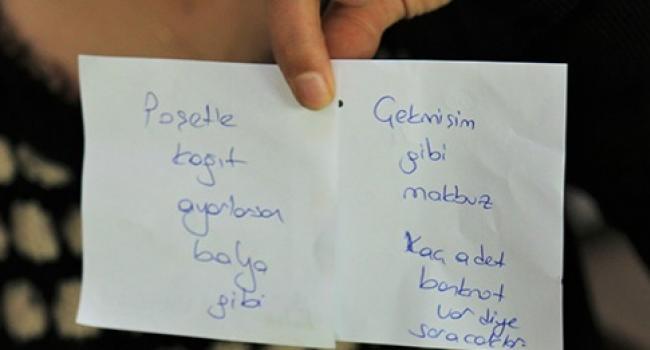 Poşetle
kağıt
ayarlasan
balya
gibi
Çekmişim
gibi
makbuz
Kaç adet
banknot
var diye
soracaklar